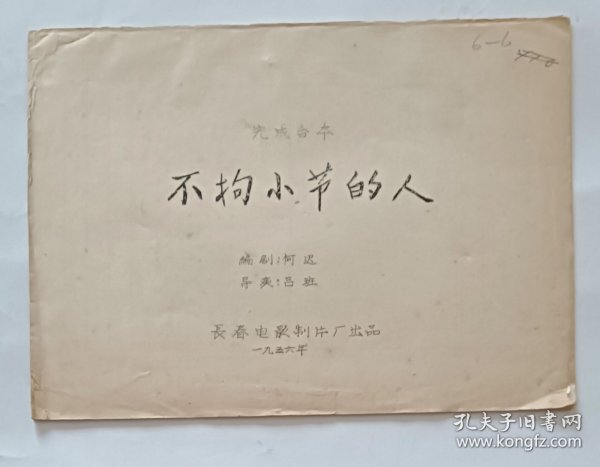 6-6
776
完成台本
不拘小节的人
编剧:何迟
导演:吕班
長春电影制片厂出品
一九五六年
孔夫子旧书网
www.kongfz.com